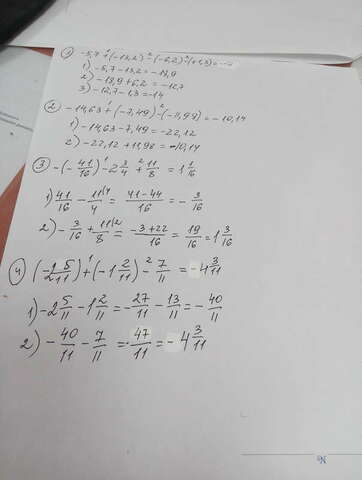 1) -5,7 + (-13,2) - (-6,2) - (+1,3) = -14
1) -5,7 - 13,2 = -18,9
2) -18,9 + 6,2 = -12,7
3) -12,7 - 1,3 = -14
2) -14,63 + (-7,49) - (-11,98) = -10,14
1) -14,63 - 7,49 = -22,12
2) -22,12 + 11,98 = -10,14
3) -(-41/16) - 2 3/4 + 11/8 = 1 1/16
1) 41/16 - 11/4 = 41-44/16 = -3/16
2) -3/16 + 11/8 = -3+22/16 = 19/16 = 1 3/16
4) (-2 5/11) + (-1 2/11) - 7/11 = -4 3/11
1) -2 5/11 - 1 2/11 = -27/11 - 13/11 = -40/11
2) -40/11 - 7/11 = -47/11 = -4 3/11
№